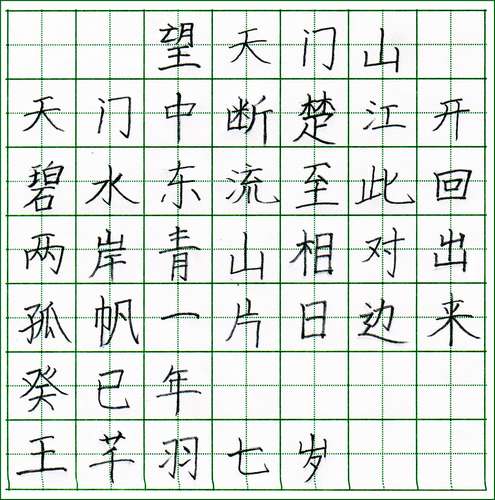 望天门山
天门中断楚江开
碧水东流至此回
两岸青山相对出
孤帆一片日边来
癸巳年
王芊羽七岁